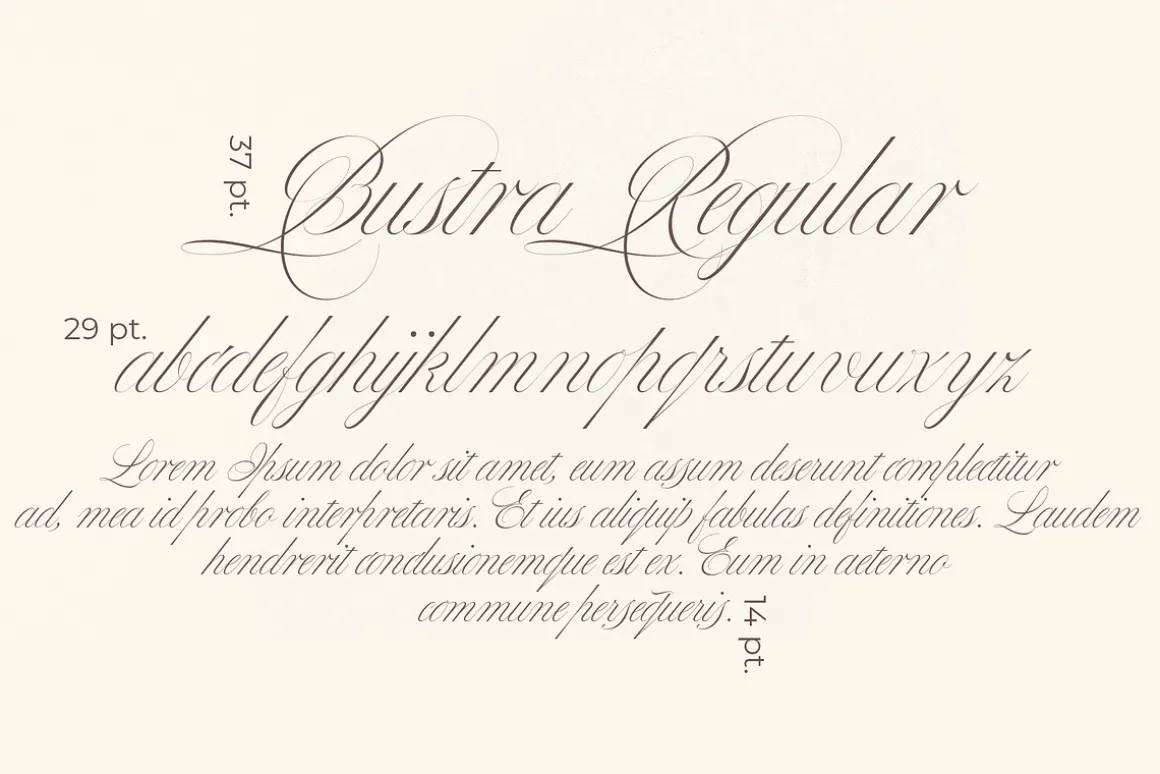 37 pt.
Bustra Regular
29 pt.
abcdefghijklmnopqrstuvwxyz
Lorem Ipsum dolor sit amet, eum assum deserunt complectitur
ad, mea id probo interpretaris. Et ius aliquip fabulas definitiones. Laudem
hendrerit conclusionemque est ex. Eum in aeterno
commune persequeris.
14 pt.